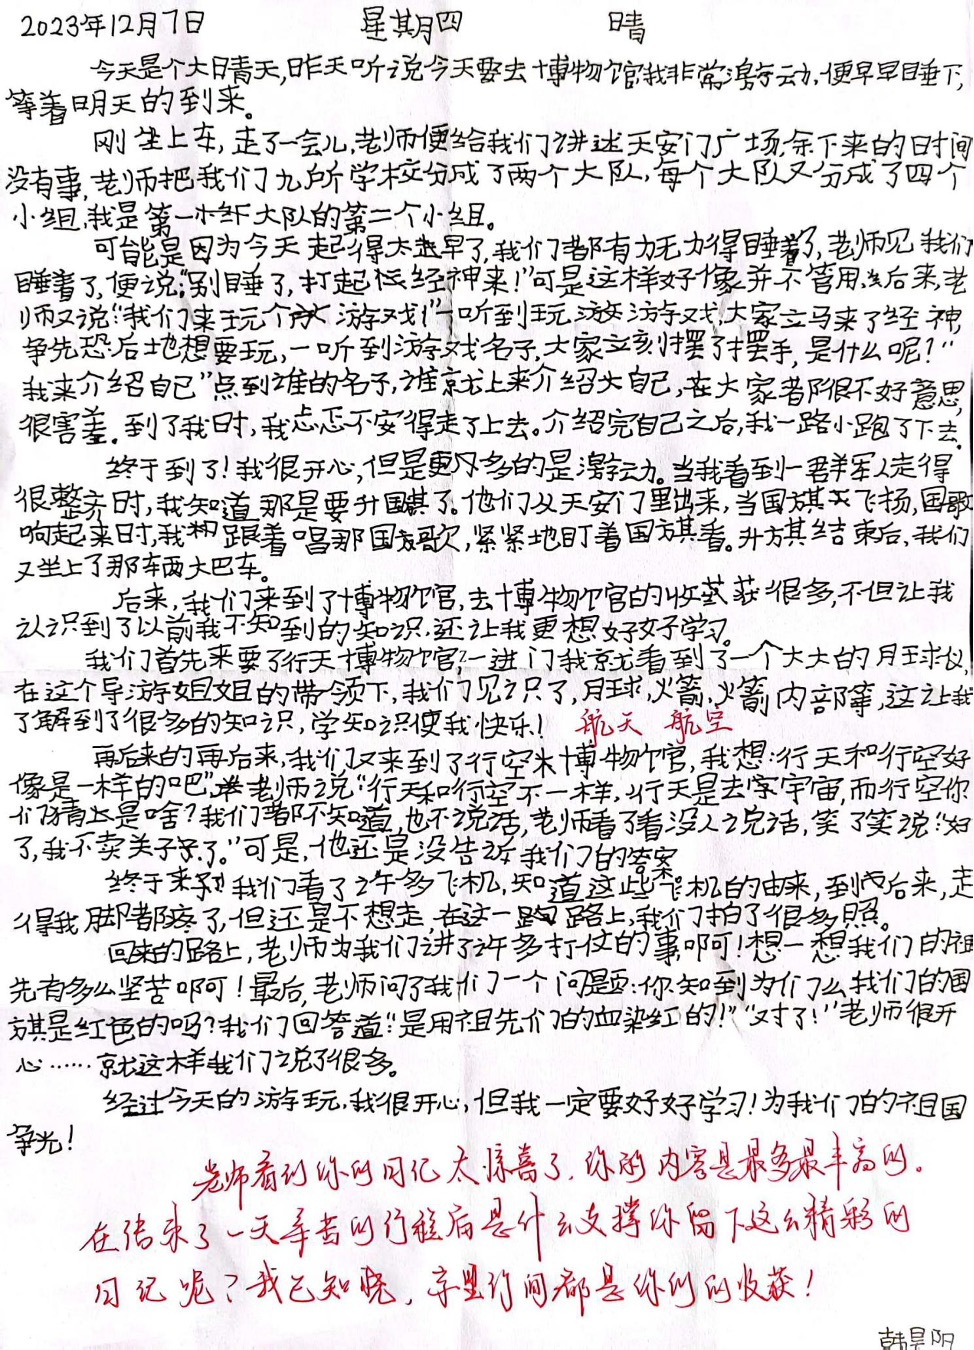 2023年12月7日 星期四 晴
今天是个大晴天,昨天听说今天要去博物馆我非常激动,便早早睡下,
等着明天的到来。
刚坐上车,走了一会儿,老师便给我们讲述天安门广场,余下来的时间
没有事,老师把我们九所学校分成了两个大队,每个大队又分成了四个
小组,我是第一大队的第二个小组。
可能是因为今天起得太早了,我们都有力无力得睡着了,老师见我们
睡着了,便说:“别睡了,打起经神来!”可是这样好像并不管用,后来,老
师又说“我们来玩个游戏!”一听到玩游戏!大家立马来了经神,
争先恐后地想要玩,一听到游戏名子,大家立刻摆了摆手,是什么呢?“
我来介绍自己”点到谁的名子,谁就上来介绍自己,在大家都很不好意思,
很害羞。到了我时,我忐忑不安得走了上去。介绍完自己之后,我一路小跑了下去。
终于到了!我很开心,但是更多的是激动。当我看到一群军人走得
很整齐时,我知道那是要升国旗了。他们从天安门里出来,当国旗飞扬,国歌
响起来时,我跟着唱那国歌,紧紧地盯着国旗看。升旗结束后,我们
又坐上了那车两大巴车。
后来,我们来到了博物官,去博物官的收获很多,不但让我
认识到了以前我不知到的知识,还让我更想好好学习。
我们首先来要了行天博物官,一进门我就看到了一个大大的月球仪,
在这个导游姐姐的带领下,我们见识了,月球,火箭,火箭内部等,这让我
了解到了很多的知识,学知识使我快乐! 航天 航空
再后来的再后来,我们又来到了行空博物官,我想:行天和行空好
像是一样的吧”,老师说“行天和行空不一样,行天是去宇宙,而行空你
们猜是啥?我们都不知道,也不说话,老师看了看没人说话,笑了笑说:“好
了,我不卖关子了。”可是,他还是没告诉我们的答案。
终于来到我们看了许多飞机,知道这些飞机的由来,到后来,走
得我脚都疼了,但还是不想走,在这一路上,我们拍了很多照。
回来的路上,老师为我们讲了许多打仗的事啊!想一想我们的祖
先有多么坚苦啊!最后,老师问了我们一个问题:你知到为们么我们的国
旗是红色的吗?我们回答道:“是用祖先们的血染红的!”“对了!”老师很开
心……就这样我们说了很多。
经过今天的游玩,我很开心,但我一定要好好学习!为我们的祖国
争光!
老师看到你的日记太惊喜了,你的内容是最多最丰富的。
在结束了一天辛苦的行程后是什么支撑你留下这么精彩的
日记呢?我已知晓,字里行间都是你们的收获!
韩昊阳